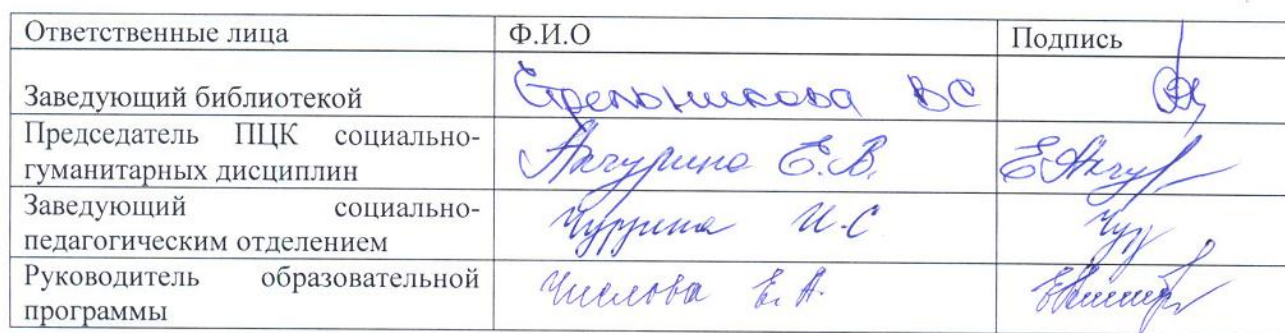 Ответственные лица Ф.И.О Подпись
Заведующий библиотекой Стрельникова ВС
Председатель ПЦК социально-
гуманитарных дисциплин Акчурина Е.В. Е Акчур
Заведующий социально-
педагогическим отделением И.С
Руководитель образовательной
программы Числова Е.А.